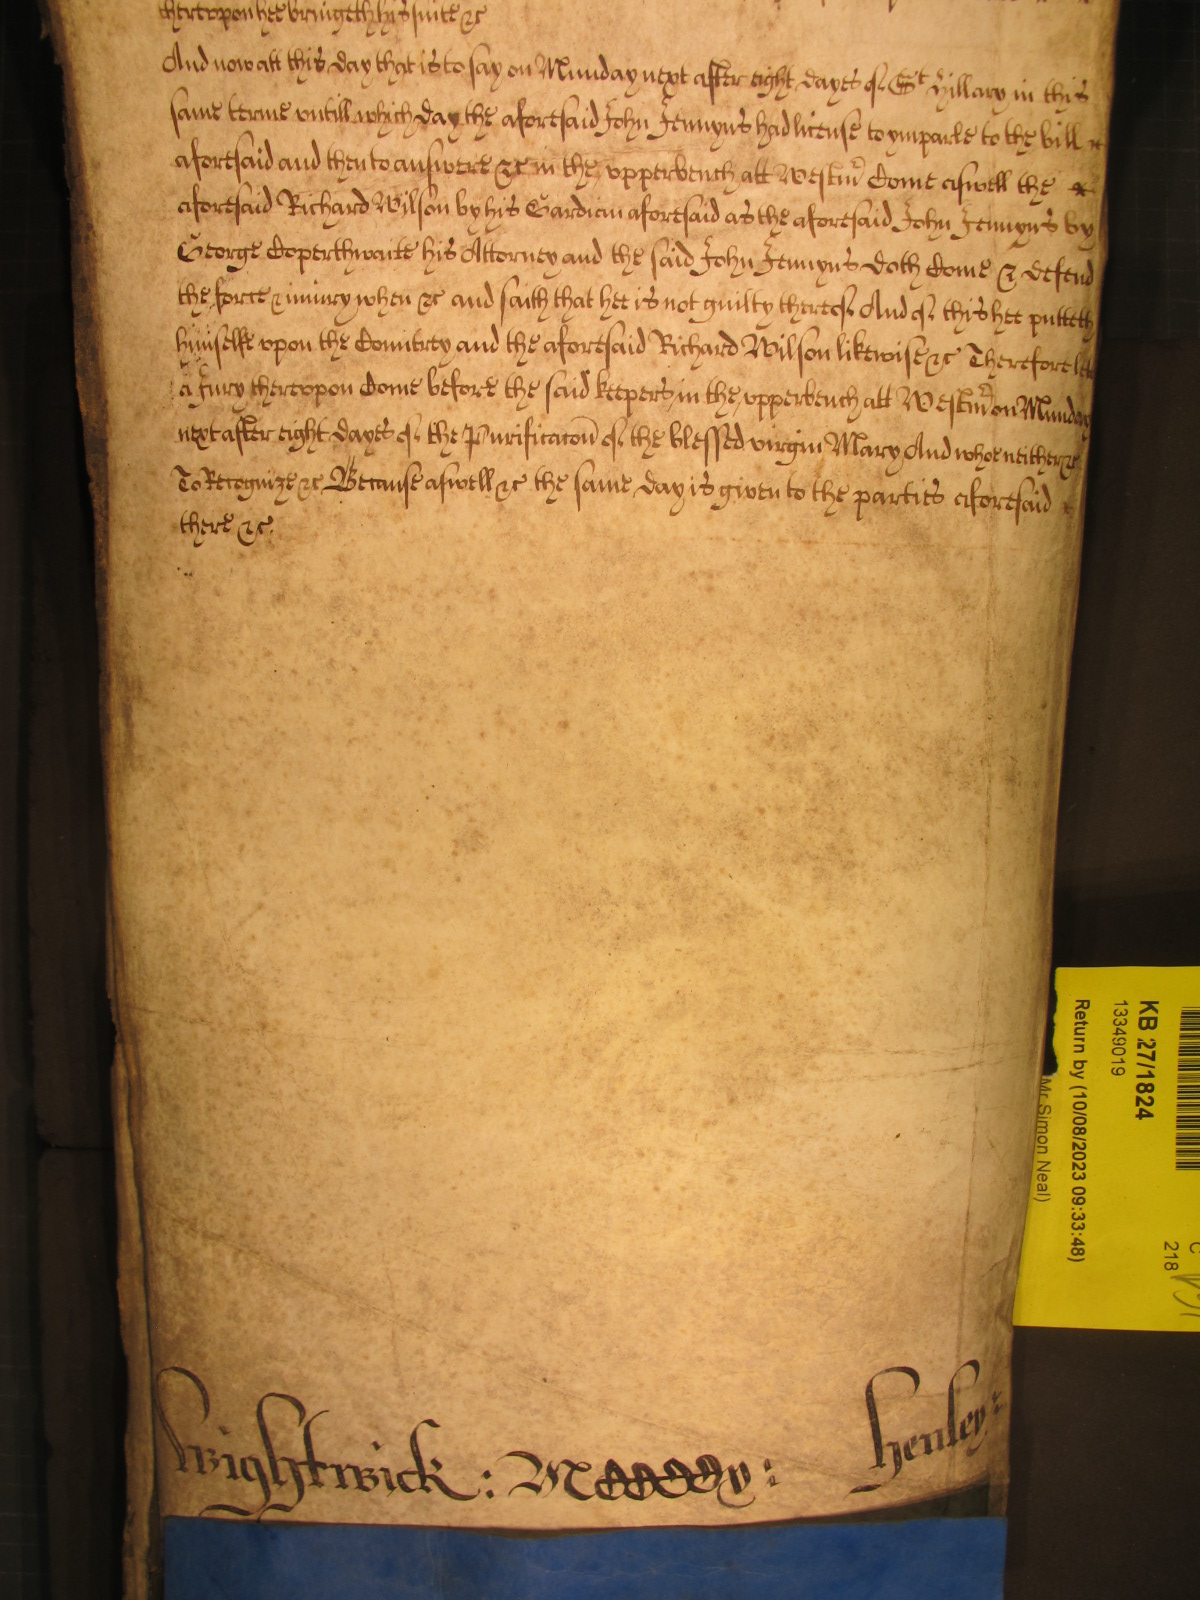 thereupon hee bringeth his suite &c
And now att this day that is to say on Munday next after eight dayes of St Hillary in this
same terme untill which day the aforesaid John Jennyns had license to ymparle to the bill &c
aforesaid and then to answere &c in the upperbench att Westmr Come aswell the
aforesaid Richard Wilson by his Gardian aforesaid as the aforesaid John Jennyns by
George Coperthwaite his Attorney and the said John Jennyns doth Come & defend
the force & iniury when &c and saith that hee is not guilty thereof And of this hee putteth
himselfe upon the Countrey and the aforesaid Richard Wilson likewise &c Therefore lett
a Jury thereupon Come before the said keepers in the upperbench att Westmr on Munday
next after eight dayes of the Purificacon of the blessed virgin Mary And whoe neither &c
To Recognize &c Because aswell &c the same day is given to the parties aforesaid
there &c.
Wightwick : henley :
KB 27/1824
13349019
Return by (10/08/2023 09:33:48)
Mr Simon Neal)
218